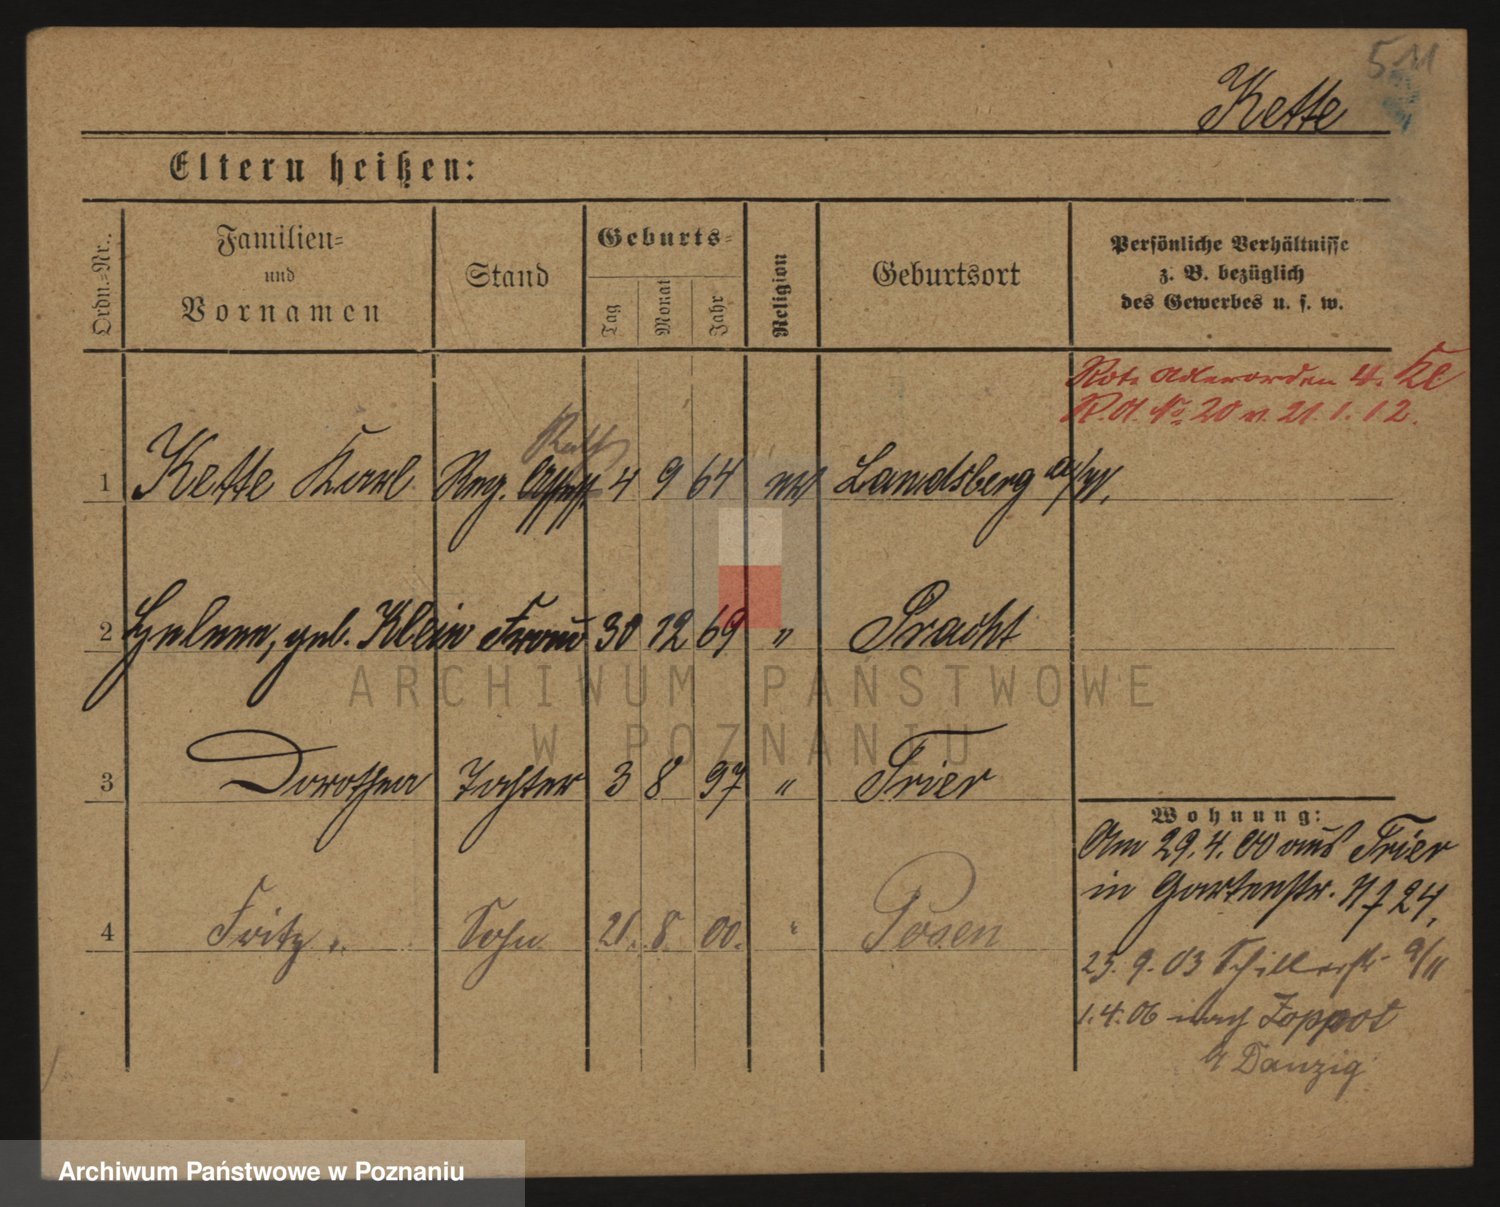 511
Kette
Eltern heißen:
Ordn.-Nr.
Familien-
und
Vornamen
Stand
Geburts-
Tag
Monat
Jahr
Religion
Geburtsort
Persönliche Verhältnisse
z. B. bezüglich
des Gewerbes u. s. w.
Rote Adlerorden 4. Kl
R.A. No 20 v. 21.1.12.
Rath
1 Kette Karl Reg. Assess. 4 9 64 ev Landsberg a/W.
2 Helene, geb. Klein Frau 30 12 69 " Pracht
3 Dorothea Tochter 3 8 97 " Trier
4 Fritz. Sohn 21. 8. 00. " Posen
Wohnung:
Am 29.4.00 aus Trier
in Gartenstr. 24,
23.9.03 Schillerstr 9/II
1.4.06 nach Zoppot
b Danzig
ARCHIWUM PAŃSTWOWE
W POZNANIU
Archiwum Państwowe w Poznaniu